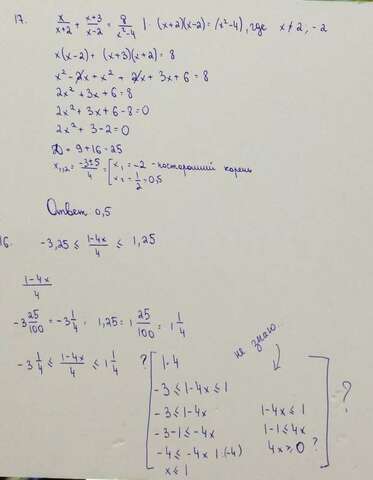 17. x/(x+2) + (x+3)/(x-2) = 8/(x²-4) | · (x+2)(x-2) = (x²-4), где x ≠ 2, -2
x(x-2) + (x+3)(x+2) = 8
x² - 2x + x² + 2x + 3x + 6 = 8
2x² + 3x + 6 = 8
2x² + 3x + 6 - 8 = 0
2x² + 3 - 2 = 0
D = 9 + 16 = 25
x₁,₂ = (-3±5)/4 = [ x₁ = -2 - посторонний корень
x₂ = 1/2 = 0,5
Ответ 0,5
16. -3,25 ≤ (1-4x)/4 ≤ 1,25
(1-4x)/4
-3 25/100 = -3 1/4. 1,25 = 1 25/100 = 1 1/4
-3 1/4 ≤ (1-4x)/4 ≤ 1 1/4 ?
не знаю...
1-4
-3 ≤ 1-4x ≤ 1
-3 ≤ 1-4x
1-4x ≤ 1
-3-1 ≤ -4x
1-1 ≤ 4x
-4 ≤ -4x |:(-4)
4x ≥ 0 ?
x ≤ 1
?